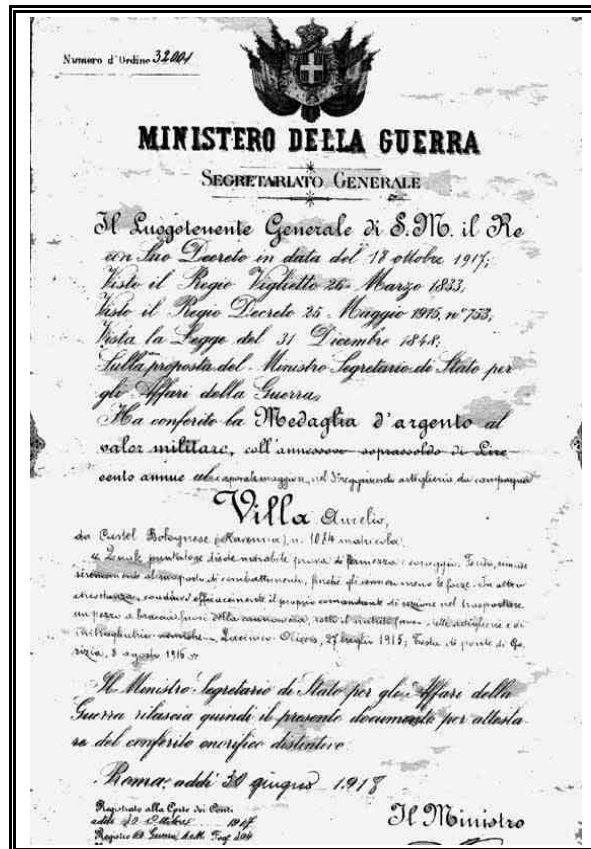 Numero d'Ordine 32001
MINISTERO DELLA GUERRA
SEGRETARIATO GENERALE
Il Luogotenente Generale di S. M. il Re
con Suo Decreto in data del 18 ottobre 1917;
Visto il Regio Viglietto 26 Marzo 1833;
Visto il Regio Decreto 25 Maggio 1915, nº 753;
Vista la Legge del 31 Dicembre 1848;
Sulla proposta del Ministro Segretario di Stato per
gli Affari della Guerra,
Ha conferito la Medaglia d'argento al
valor militare, coll'annessovi soprassoldo di Lire
cento annue al caporale maggiore nel 3º reggimento artiglieria da campagna
Villa Aurelio,
da Castel Bolognese (Ravenna), n. 1084 matricola
Quale puntatore diede mirabile prova di fermezza e coraggio. Ferito, rimase
serenamente al suo posto di combattimento, finché gli vennero meno le forze. In altra
circostanza, coadiuvò efficacemente il proprio comandante di sezione nel trasportare
un pezzo a braccia fuori della cannoniera, sotto il nutrito fuoco delle artiglierie e di
Quisca 27 luglio 1915; Testa di ponte di Go-
rizia, 8 agosto 1916
Il Ministro Segretario di Stato per gli Affari della
Guerra rilascia quindi il presente documento per attesta-
re del conferito onorifico distintivo.
Roma, addì 30 giugno 1918
Registrato alla Corte dei Conti
addì 20 Ottobre 1917
Registro Guerra Fog. 204
Il Ministro